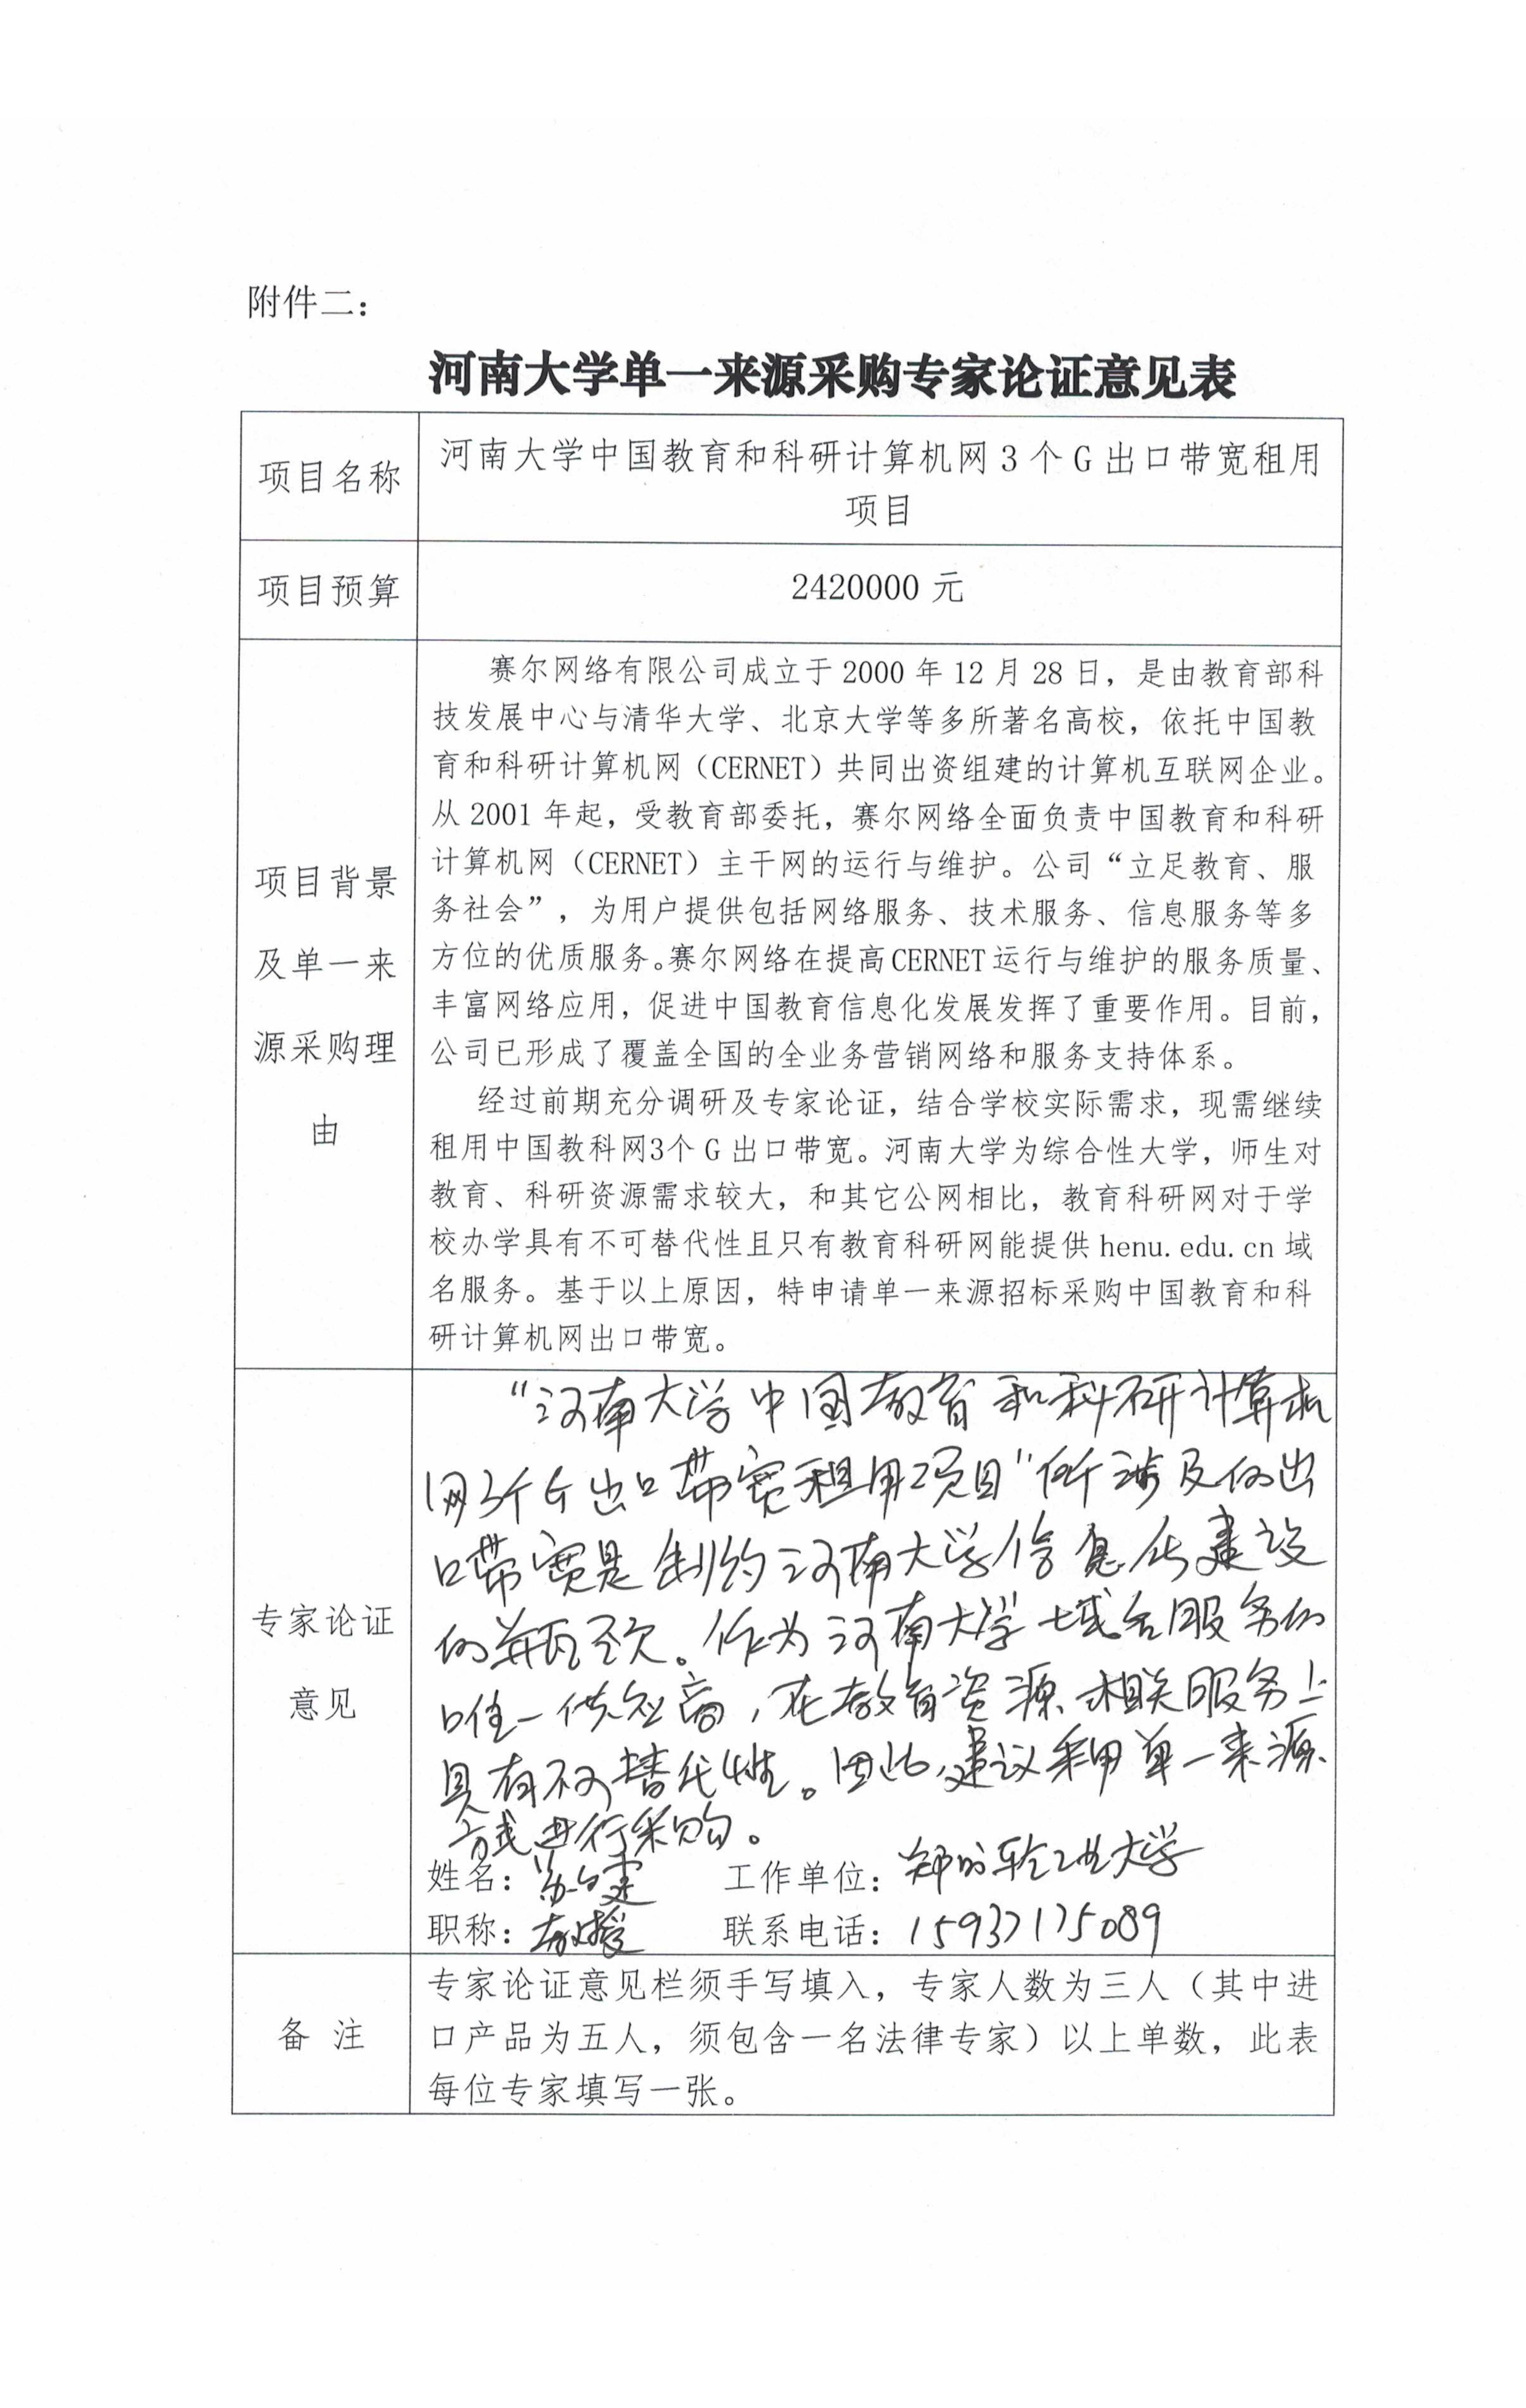 附件二：
河南大学单一来源采购专家论证意见表
项目名称
河南大学中国教育和科研计算机网 3 个 G 出口带宽租用
项目
项目预算
2420000 元
项目背景
及单一来
源采购理
由
赛尔网络有限公司成立于 2000 年 12 月 28 日，是由教育部科
技发展中心与清华大学、北京大学等多所著名高校，依托中国教
育和科研计算机网（CERNET）共同出资组建的计算机互联网企业。
从 2001 年起，受教育部委托，赛尔网络全面负责中国教育和科研
计算机网（CERNET）主干网的运行与维护。公司“立足教育、服
务社会”，为用户提供包括网络服务、技术服务、信息服务等多
方位的优质服务。赛尔网络在提高CERNET运行与维护的服务质量、
丰富网络应用，促进中国教育信息化发展发挥了重要作用。目前，
公司已形成了覆盖全国的全业务营销网络和服务支持体系。
经过前期充分调研及专家论证，结合学校实际需求，现需继续
租用中国教科网3个 G 出口带宽。河南大学为综合性大学，师生对
教育、科研资源需求较大，和其它公网相比，教育科研网对于学
校办学具有不可替代性且只有教育科研网能提供 henu.edu.cn 域
名服务。基于以上原因，特申请单一来源招标采购中国教育和科
研计算机网出口带宽。
专家论证
意见
“河南大学中国教育和科研计算机
网3个G出口带宽租用项目”所涉及的出
口带宽是制约河南大学信息化建设
的瓶颈。作为河南大学域名服务的
唯一供应商，在教育资源相关服务上
具有不可替代性。因此，建议采用单一来源
方式进行采购。
姓名： 工作单位：郑州轻工业大学
职称：教授 联系电话：15937175089
备 注
专家论证意见栏须手写填入，专家人数为三人（其中进
口产品为五人，须包含一名法律专家）以上单数，此表
每位专家填写一张。